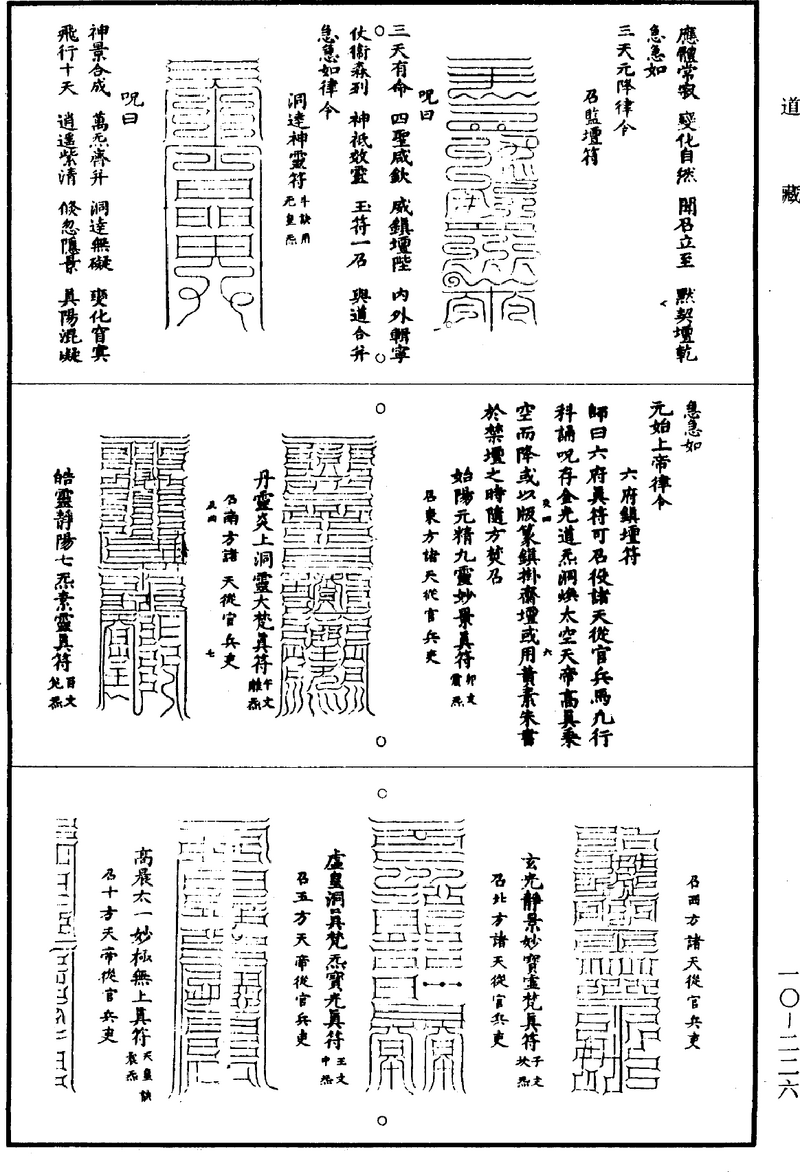 道藏
應體常寂　變化自然　聞召立至　默契壇乾
急急如
三天元降律令
召監壇符
呪曰
三天有命　四聖咸欽　威鎮壇陛　內外輯寧
仗衛森列　神祇效靈　玉符一召　與道合并
急急如律令
洞達神靈符
斗訣用
炁皇炁
呪曰
神景合成　萬炁齊并　洞達無礙　變化窅冥
飛行十天　逍遙紫清　倐忽隱景　真陽混凝
急急如
元始上帝律令
六府鎮壇符
師曰六府真符可召役諸天從官兵馬凡行
科誦呪存金光道炁洞煥太空天帝高真乘
空而降或以版篆鎮掛齋壇或用黃素朱書
於禁壇之時隨方焚召
始陽元精九靈妙景真符
卯文
震炁
召東方諸天從官兵吏
丹靈炎上洞靈大梵真符
午文
離炁
召南方諸天從官兵吏
皓靈靜陽七炁素靈真符
酉文
兌炁
召西方諸天從官兵吏
玄光靜景妙寶靈梵真符
子文
坎炁
召北方諸天從官兵吏
虛皇洞真梵炁寶光真符
王文
中炁
召五方天帝從官兵吏
高晨太一妙極無上真符
天皇訣
召十方天帝從官兵吏
一〇－二二六